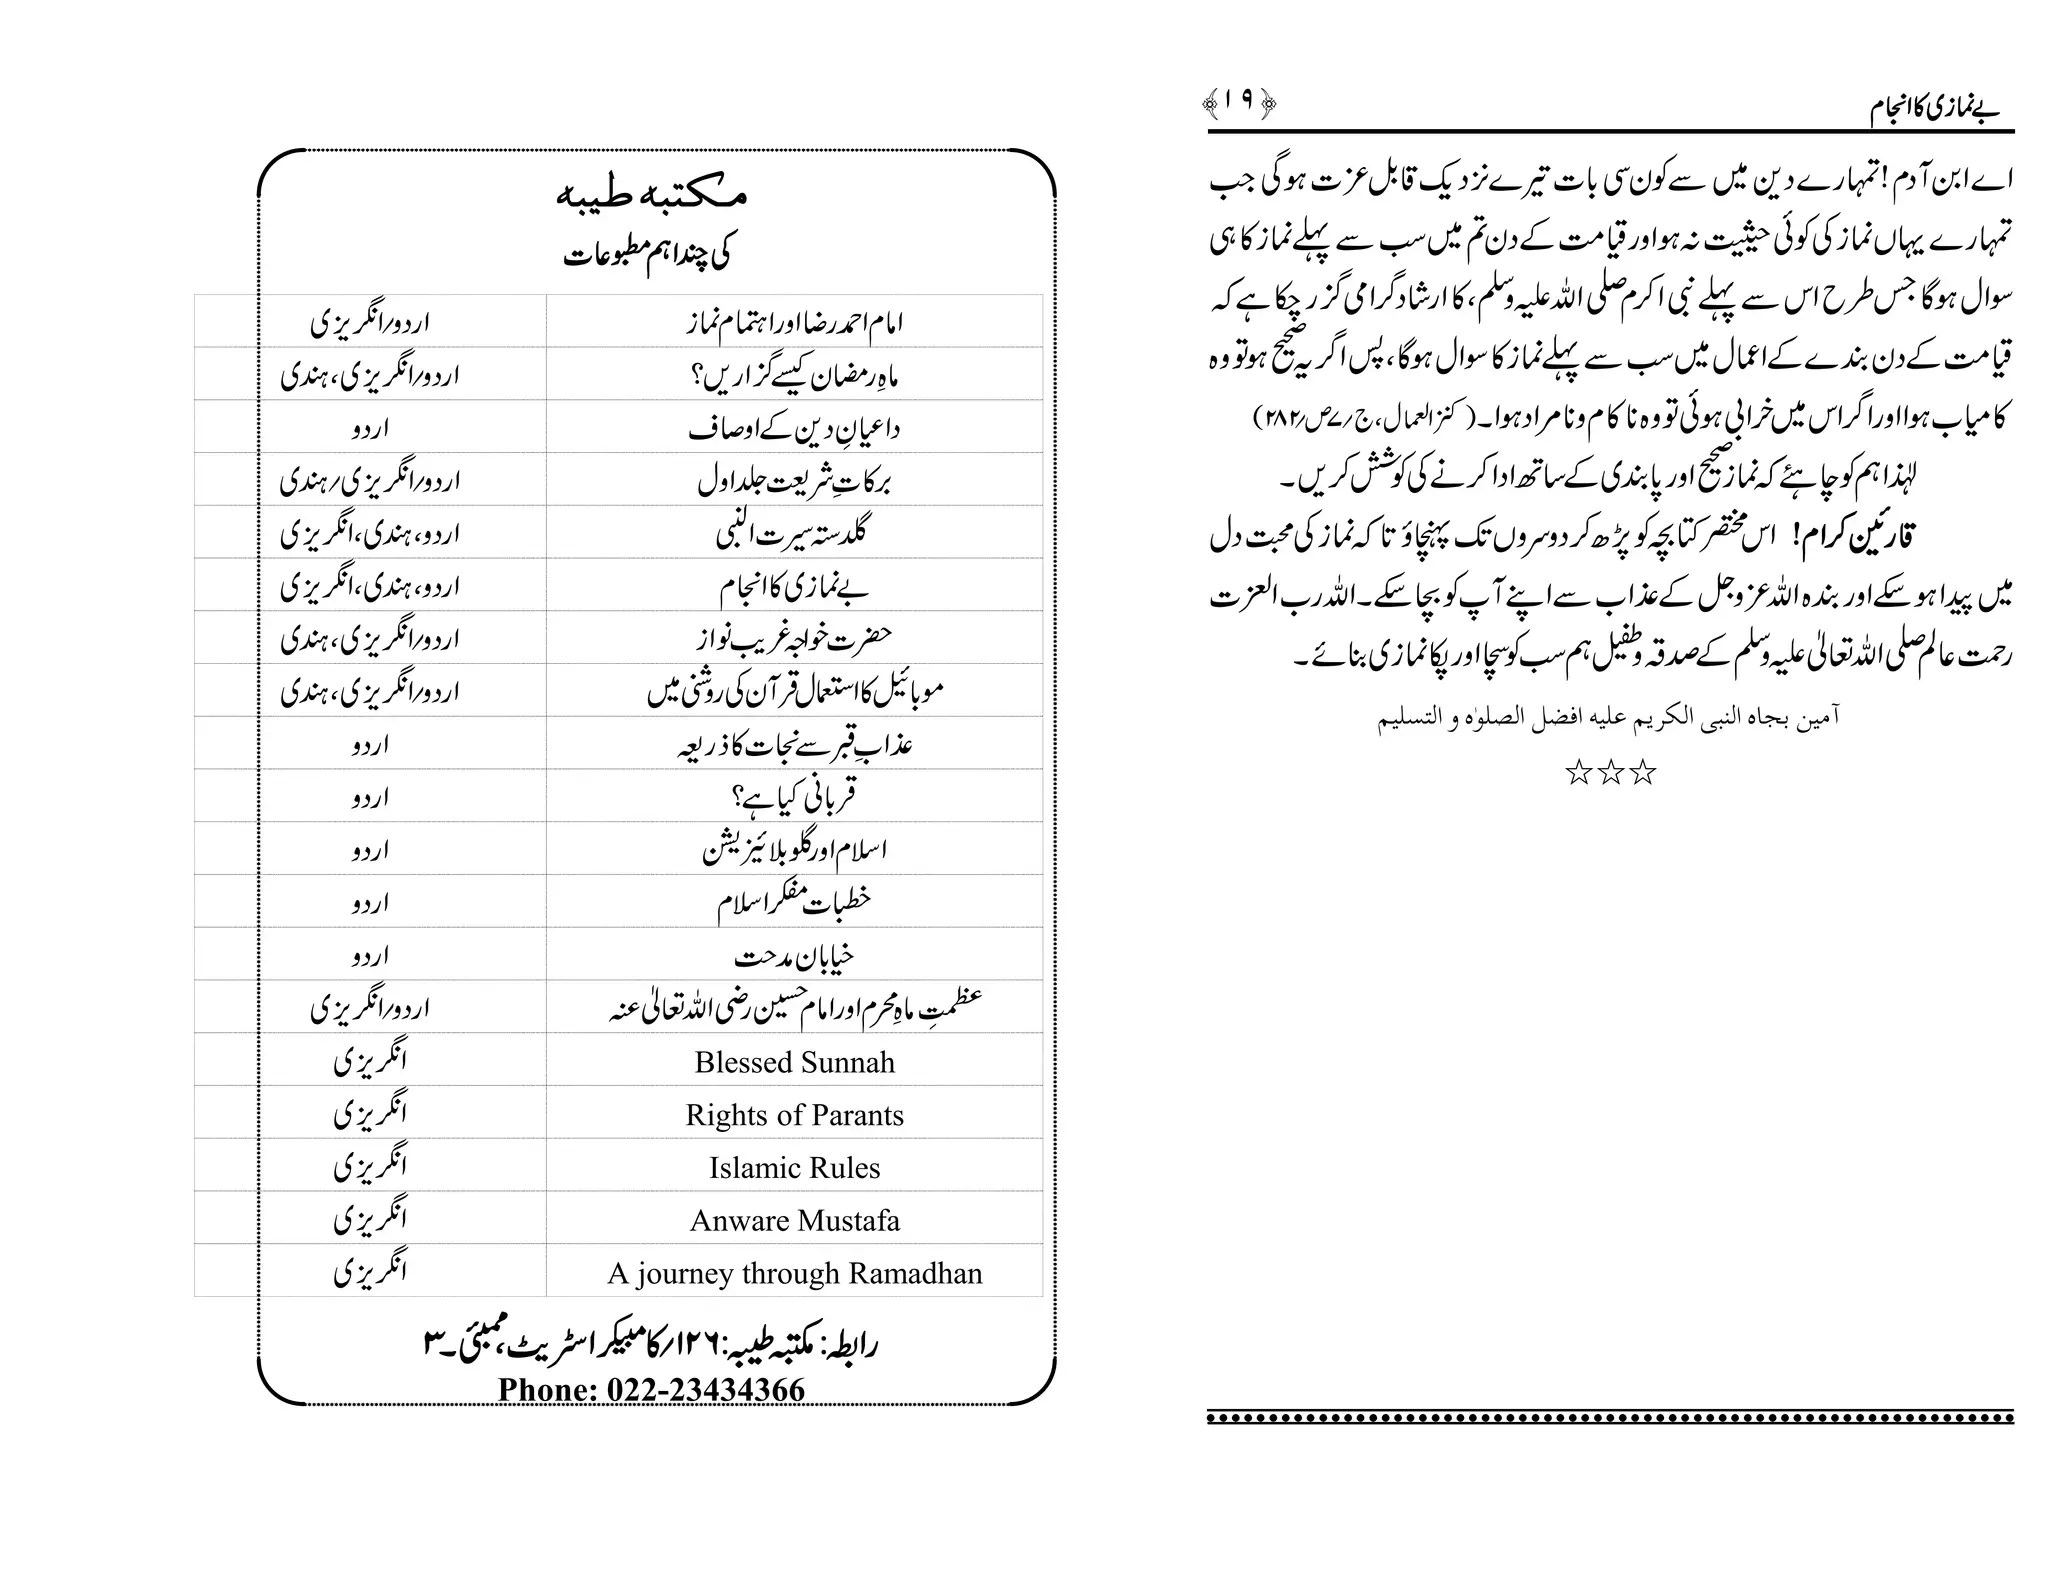 بے نمازی کا انجام ﴿۱۹﴾
اے ابن آدم! تمہارے دین میں سے کون سی بات تیرے نزدیک قابل عزت ہوگی جب
تمہارے یہاں نماز کی کوئی حیثیت نہ ہو اور قیامت کے دن تم میں سب سے پہلے نماز کا ہی
سوال ہوگا جس طرح اس سے پہلے نبی اکرم صلی اللہ علیہ وسلم، کا ارشاد گرامی گزر چکا ہے کہ
قیامت کے دن بندے کے اعمال میں سب سے پہلے نماز کا سوال ہوگا، پس اگر یہ صحیح ہو تو وہ
کامیاب ہوا اور اگر اس میں خرابی ہوئی تو وہ ناکام و نامراد ہوا۔ (کنز العمال، ج؍۷ ص؍۲۸۲)
لہٰذا ہم کو چاہئے کہ نماز صحیح اور پابندی کے ساتھ ادا کرنے کی کوشش کریں۔
قارئین کرام! اس مختصر کتابچہ کو پڑھ کر دوسروں تک پہنچاؤ تا کہ نماز کی محبت دل
میں پیدا ہو سکے اور بندہ اللہ عزوجل کے عذاب سے اپنے آپ کو بچا سکے۔ اللہ رب العزت
رحمت عالم صلی اللہ تعالیٰ علیہ وسلم کے صدقہ و طفیل ہم سب کو سچا اور پکا نمازی بنائے۔
آمین بجاہ النبی الکریم علیہ افضل الصلوٰہ و التسلیم
☆☆☆
مکتبہ طیبہ
کی چند اہم مطبوعات
امام احمد رضا اور اہتمام نماز اردو؍انگریزی
ماہِ رمضان کیسے گزاریں؟ اردو؍انگریزی، ہندی
داعیانِ دین کے اوصاف اردو
برکاتِ شریعت جلد اول اردو؍انگریزی؍ہندی
گلدستہ سیرت النبی اردو، ہندی، انگریزی
بے نمازی کا انجام اردو، ہندی، انگریزی
حضرت خواجہ غریب نواز اردو؍انگریزی، ہندی
موبائیل کا استعمال قرآن کی روشنی میں اردو؍انگریزی، ہندی
عذابِ قبر سے نجات کا ذریعہ اردو
قربانی کیا ہے؟ اردو
اسلام اور گلوبلائیزیشن اردو
خطبات مفکر اسلام اردو
خیابان مدحت اردو
عظمتِ ماہِ محرم اور امام حسین رضی اللہ تعالیٰ عنہ اردو؍انگریزی
Blessed Sunnah انگریزی
Rights of Parants انگریزی
Islamic Rules انگریزی
Anware Mustafa انگریزی
A journey through Ramadhan انگریزی
رابطہ: مکتبہ طیبہ: ۱۲۶؍کامبیکر اسٹریٹ، ممبئی۔۳
Phone: 022-23434366